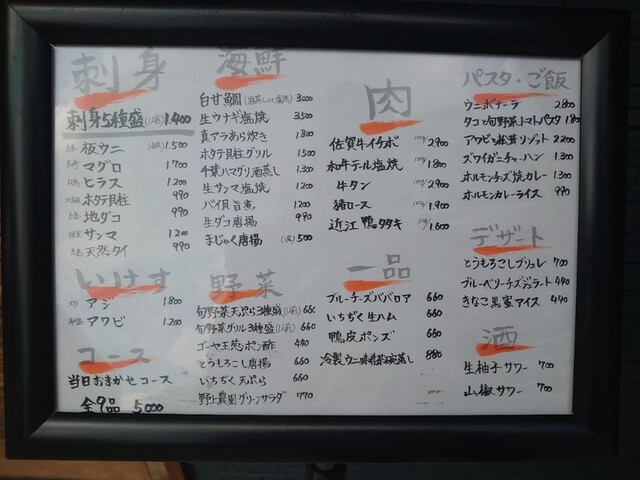 刺身
刺身5種盛(1人前) 1.400
板ウニ 1.500
マグロ 1.700
ヒラス 1.200
ホタテ貝柱 990
地ダコ 990
サンマ 1.200
天然タイ 990
いけす
アジ 1.800
アワビ 1.200
コース
当日おまかせコース
全9品 5000
海鮮
白甘鯛 3000
生ウナギ塩焼 3500
真アラあら炊き 1.800
ホタテ貝柱グリル 1500
千葉ハマグリ酒蒸し 1.300
生サンマ塩焼 1.200
バイ貝旨煮 1.200
生ダコ唐揚 990
まじゃく唐揚 500
野菜
旬野菜天ぷら3種盛(1人前) 660
旬野菜グリル3種盛(1人前) 660
ゴーヤ玉葱ポン酢 440
とうもろこし唐揚 660
いちぢく天ぷら 660
野上農園グリーンサラダ 770
肉
佐賀牛イチボ 100g 2900
和牛テール塩焼 1.800
牛タン 2900
猪ロース 1.900
近江鴨タタキ 1.600
一品
ブルーチーズババロア 660
いちぢく生ハム 660
鴨皮ポンズ 550
冷製ウニ茶碗蒸し 880
パスタ・ご飯
ウニボナーラ 2800
タコと旬野菜トマトパスタ 1800
アワビと松茸リゾット 2200
ズワイガニチャーハン 1.300
ホルモンチーズ焼カレー 1.300
ホルモンカレーライス 990
デザート
とうもろこしブリュレ 700
ブルーベリーチーズジェラート 440
きなこ黒蜜アイス 440
酒
生柚子サワー 700
山椒サワー 700